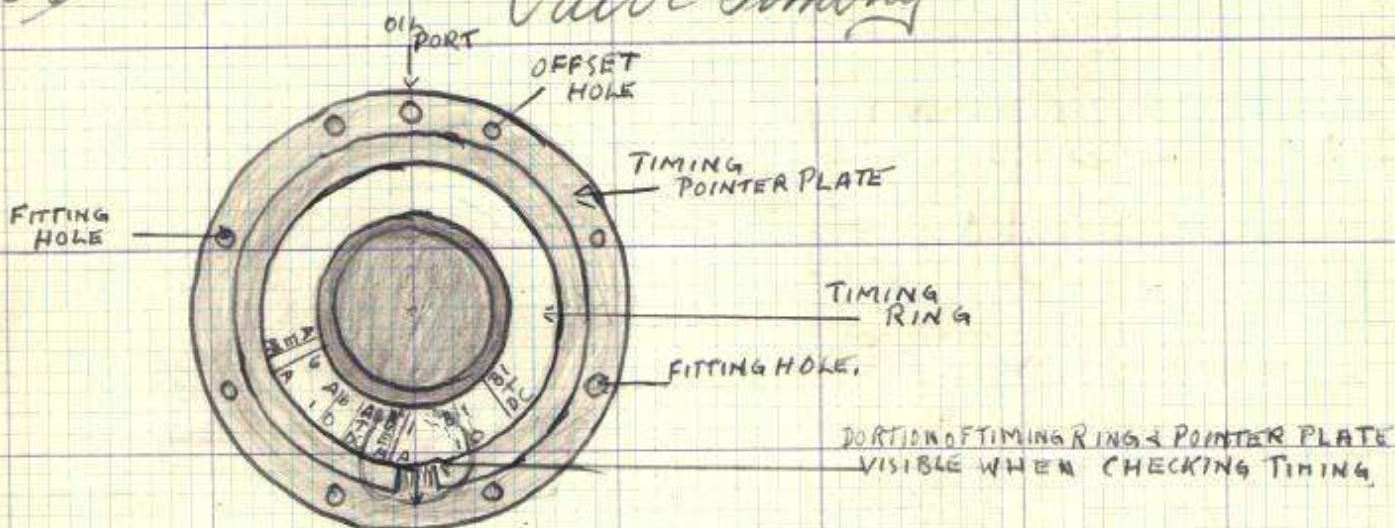 Valve Timing
OIL
PORT
OFFSET
HOLE
TIMING
POINTER PLATE
FITTING
HOLE
TIMING
RING
FITTING HOLE.
PORTION OF TIMING RING & POINTER PLATE
VISIBLE WHEN CHECKING TIMING